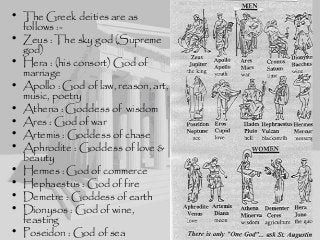 • The Greek deities are as
follows :-
• Zeus : The sky god (Supreme
god)
• Hera : (his consort) God of
marriage
• Apollo : God of law, reason, art,
music, poetry
• Athena : Goddess of wisdom
• Ares : God of war
• Artemis : Goddess of chase
• Aphrodite : Goddess of love &
beauty
• Hermes : God of commerce
• Hephaestus : God of fire
• Demetre : Goddess of earth
• Dionysos : God of wine,
feasting
• Poseidon : God of sea
MEN
Zeus Apollo Ares Cronus Dionysus
Jupiter Apollo Mars Saturn Bacchus
the king youth war time wine
Poseidon Eros Hades Hephaestus Hermes
Neptune Cupid Pluto Vulcan Mercury
sea love hell blacksmith
WOMEN
Aphrodite Artemis Athena Demeter Hera
Venus Diana Minerva Ceres Juno
love moon wisdom agriculture the queen
There is only "One God"... ask St. Augustine